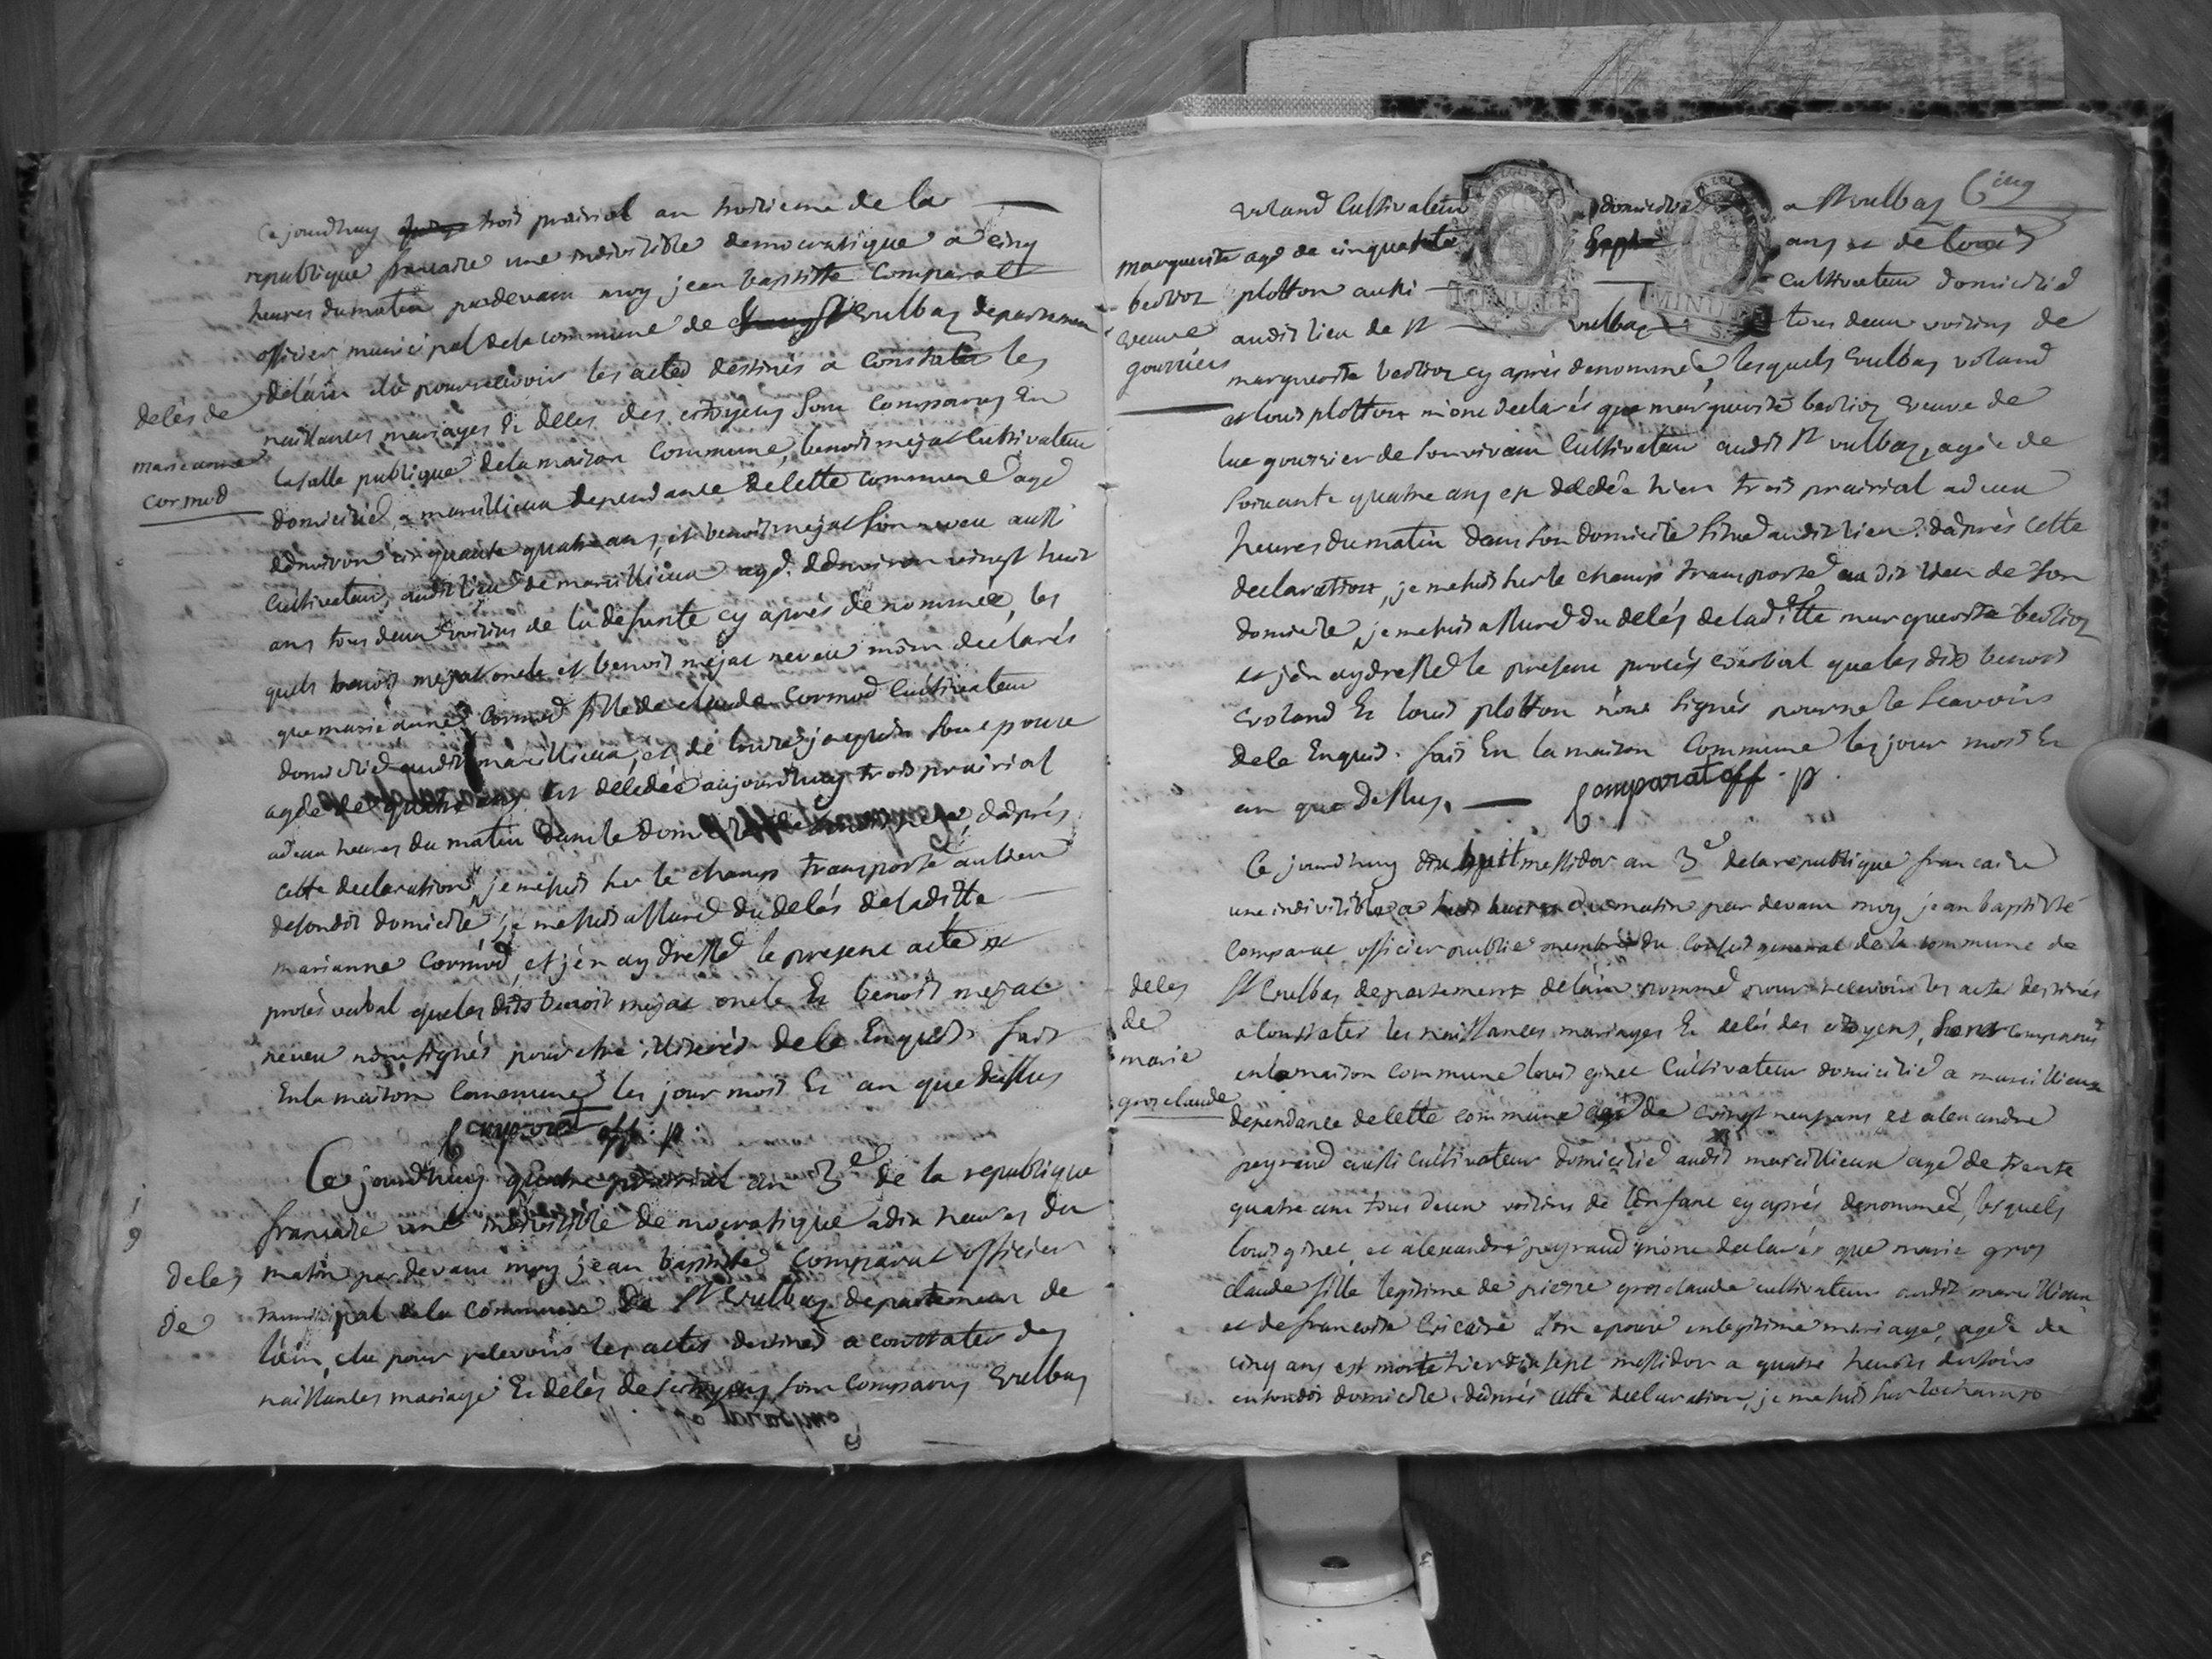 Ce jourdhuy trois prairial an troisieme de la
republique francaise une indivisible democratique a cinq
heures du matin pardevant moy jean baptiste Comparat
officier municipal dela commune de St vulbaz departement
delain elu pour recevoir les actes destinés a constater les
naissances mariages et deces des citoyens sont comparus En
la salle publique dela maison Commune, benoit mejat Cultivateur
domicilié a marcillieux dependance de cette commune agé
denviron cinquante quatre ans, et benoit mejat son neveu aussi
Cultivateur, audit lieu de marcillieux agé denviron vingt huit
ans tous deux voisins de la defunte cy aprés denommée, les
quels benoit mejat oncle et benoit mejat neveu mont declarés
que marie anne Cormod fille de claude Cormod Cultivateur
domicilié audit marcillieux, et de louise jaquet son epouse
agée de quatre ans est decedée aujourdhuy trois prairial
a deux heures du matin dans le domicile daprés
cette declaration, je me suis sur le champ transporté au lieu
desondit domicile, je me suis assuré du decés deladitte
marianne Cormod, et jén ay dressé le present acte
procés verbal queles dits benoit mejat oncle Et benoit mejat
neveu nont signés pour etre illiterés de ce Enquis. fait
En la maison Commune les jour mois Et an que dessus
Comparat off. p.
decés de
marie anne
Cormod
Ce jourdhuy quatre prairial an 3e de la republique
francaise une indivisible democratique a dix heures du
matin pardevant moy jean baptiste Comparat officier
municipal dela commune de St vulbaz departement de
lain, elu pour recevoir les actes destinés a constater des
naissances mariage Et decés des citoyens sont comparus vulbas
19
deces
de
Cinq
voland Cultivateur domicilié a St vulbaz
agé de cinquante ans et de louis
plotton aussi cultivateur domicilié
audit lieu de St vulbaz tous deux voisins de
marguerite berlioz cy aprés denommée, lesquels vulbas voland
et louis plotton mont declarés que marguerite berlioz veuve de
luc gourrier de son vivant Cultivateur audit St vulbaz, agée de
soixante quatre ans est decedée hier trois prairial a deux
heures du matin dans son domicile situé audit lieu. daprés cette
declaration, je me suis sur le champ transporté au dit lieu de son
domicile je me suis assuré du decés deladitte marguerite berlioz
et jén ay dressé le present procés verbal que les dits
voland Et louis plotton nont signés pour ne le scavoir
de ce Enquis. fait En la maison Commune les jour mois Et
an que dessus. Comparat off. p.
marguerite
berlioz
veuve
gourriers
Ce jourdhuy dix huit messidor an 3e dela republique francaise
une indivisible a huit heures du matin par devant moy jean baptiste
Comparat officier public membre du Conseil general de la commune de
St vulbas departement delain nommé pour recevoir les actes destinés
a constater les naissances mariages Et decés des citoyens, sont comparus
en la maison commune louis ginet Cultivateur domicilié a marcillieux
dependance de cette commune agé de vingt neuf ans et alexandre
peyraud aussi Cultivateur domicilié audit marcillieux agé de trente
quatre ans tous deux voisins de lenfant cy aprés denommée, lesquels
louis ginet et alexandre peyraud mont declarés que marie gros
claude fille legitime de pierre grosclaude cultivateur audit marcillieux
et de francoise son epouse en legitime mariage, agée de
cinq ans est morte hier dix sept messidor a quatre heures du soir
en sondit domicile. daprés cette declaration, je me suis sur le champ
deces
de
marie
grosclaude